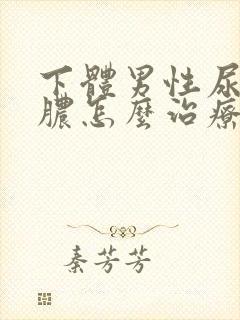 下體男性尿
膿怎麼治療
秦芳芳